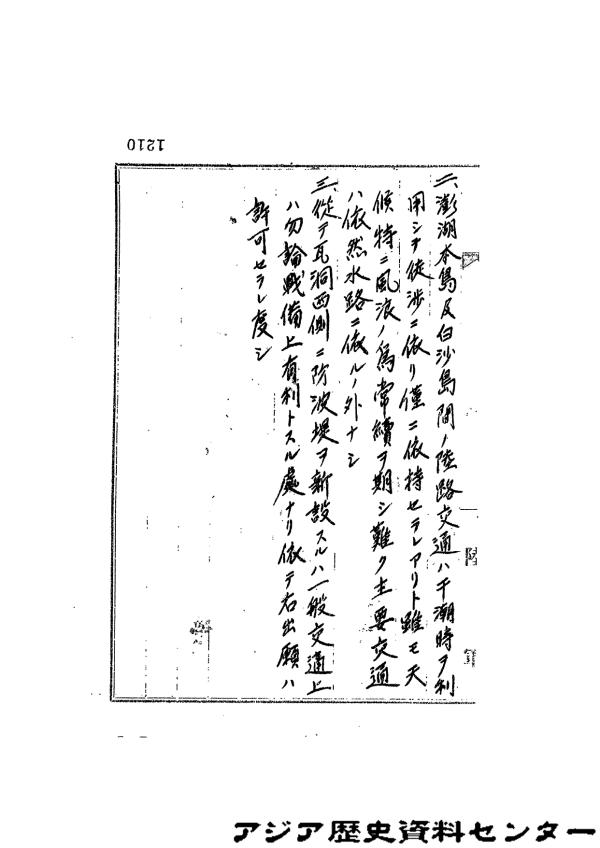 1210
二、澎湖本島及白沙島間ノ陸路交通ハ干潮時ヲ利
用シテ徒渉ニ依リ僅ニ依持セラレアリト雖モ天
候特ニ風浪ノ爲常續ヲ期シ難ク主要交通
ハ依然水路ニ依ルノ外ナシ
三、從テ瓦洞西側ニ防波堤ヲ新設スルハ一般交通上
ハ勿論戰備上有利トスル處ナリ依テ右出願ハ
許可セラレ度シ
アジア歴史資料センター